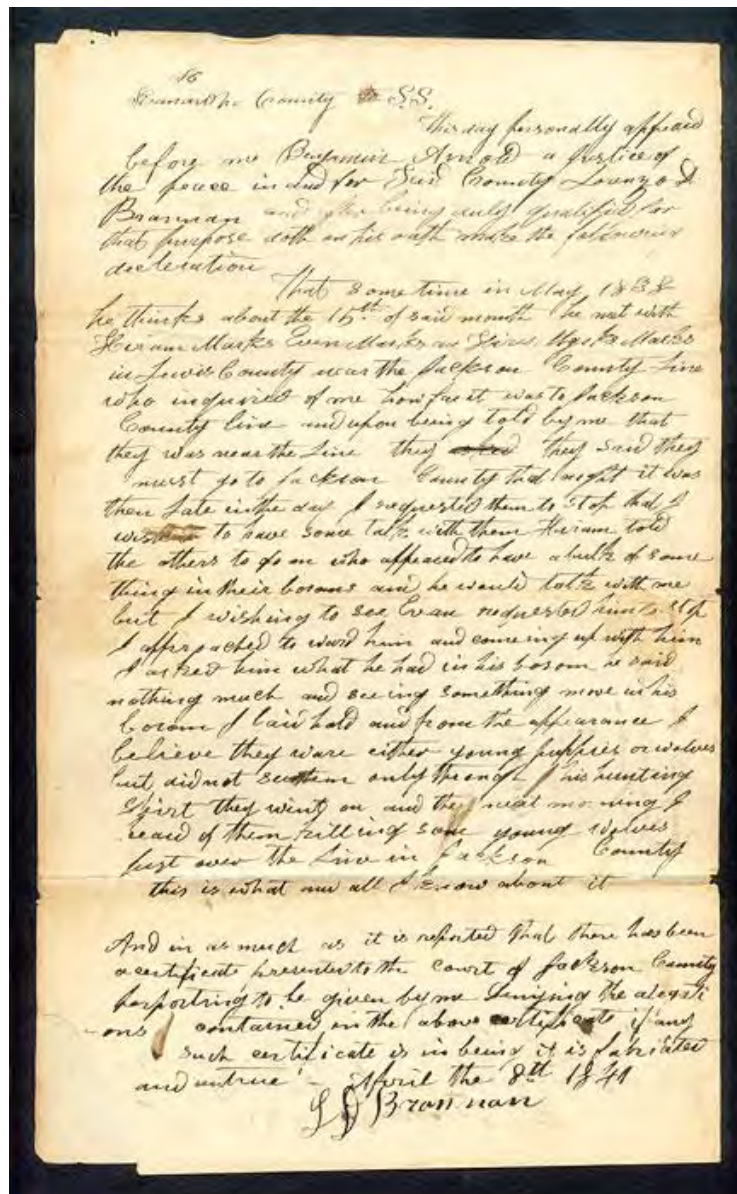 Kanawha County SS.
This day personally appeard
before me Benjamin Arnold a Justice of
the peace in and for Said County Lorenzo D
Brannan and after being duly qualified for
that purpose doth on his oath make the following
decleration
That some time in May 1838
he thinks about the 15th of said month he met with
Hiram Marks Evan Marks Marks
in Lewis County near the Jackson County Line
who inquired of me how far it was to Jackson
County line and upon being told by me that
they was near the Line they they said they
must go to Jackson County that night it was
then late in the day I requested them to stop that I
to have some talk with them Hiram told
the others to go on who appeared to have a bulk of some
thing in their bosoms and he would talk with me
but I wishing to see Evan requested him to stop
I approached to ward him and comeing up with him
I asked him what he had in his bosom he said
nothing much and seeing something move in his
bosom I laid hold and from the appearance I
believe they ware either young puppies or wolves
but did not see them only through his hunting
Shirt they went on and the next morning I
heard of them killing some young wolves
Just over the Line in Jackson County
this is what and all I know about it
And in as much as it is reported that there has been
a certificate presented to the Court of Jackson County
purporting to be given by me denying the alegati
ons contained in the above certificate if any
such certificate is in being it is fabricated
and untrue April the 8th 1841
L D Brannan